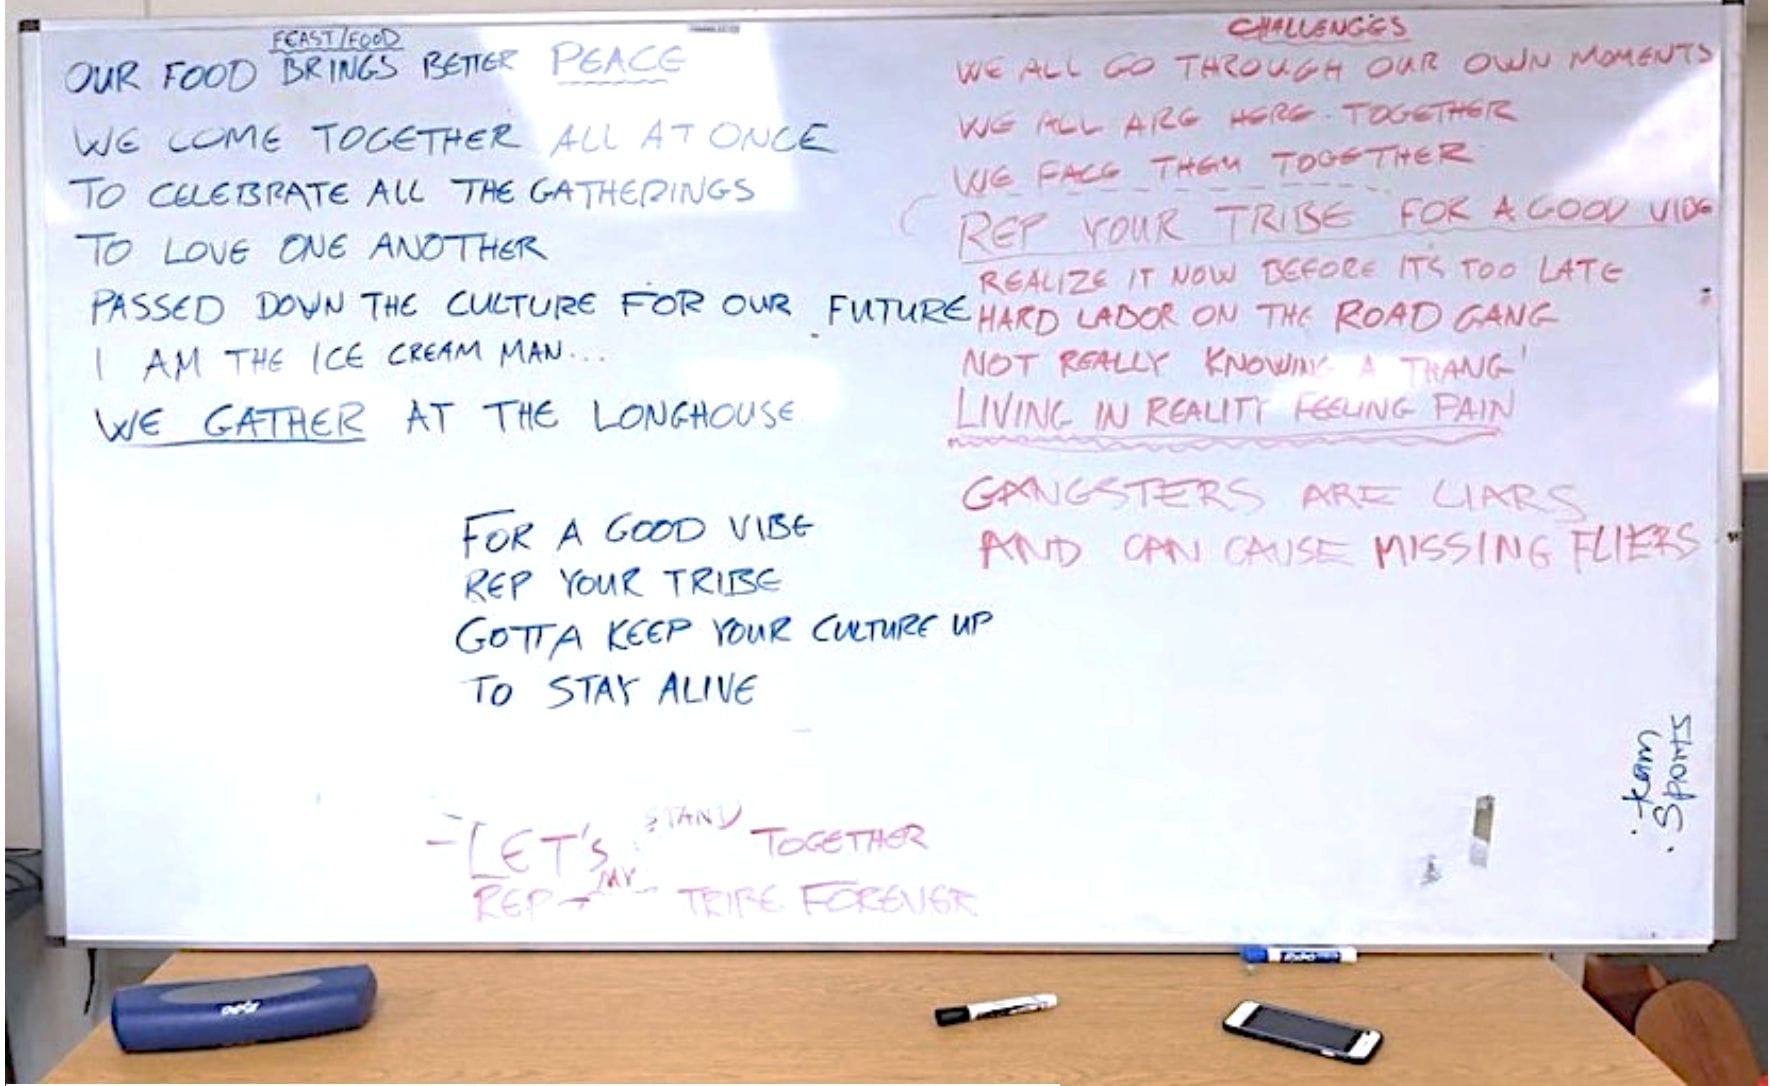 FEAST/FOOD
OUR FOOD BRINGS BETTER PEACE
WE COME TOGETHER ALL AT ONCE
TO CELEBRATE ALL THE GATHERINGS
TO LOVE ONE ANOTHER
PASSED DOWN THE CULTURE FOR OUR FUTURE
I AM THE ICE CREAM MAN...
WE GATHER AT THE LONGHOUSE
FOR A GOOD VIBE
REP YOUR TRIBE
GOTTA KEEP YOUR CULTURE UP
TO STAY ALIVE
-LET'S STAND TOGETHER
REP MY TRIBE FOREVER
CHALLENGES
WE ALL GO THROUGH OUR OWN MOMENTS
WE ALL ARE HERE TOGETHER
WE FACE THEM TOGETHER
REP YOUR TRIBE FOR A GOOD VIBE
REALIZE IT NOW BEFORE IT'S TOO LATE
HARD LABOR ON THE ROAD GANG
NOT REALLY KNOWING A THANG'
LIVING IN REALITY FEELING PAIN
GANGSTERS ARE LIARS
AND CAN CAUSE MISSING FLIERS
· team
· Sports
expo